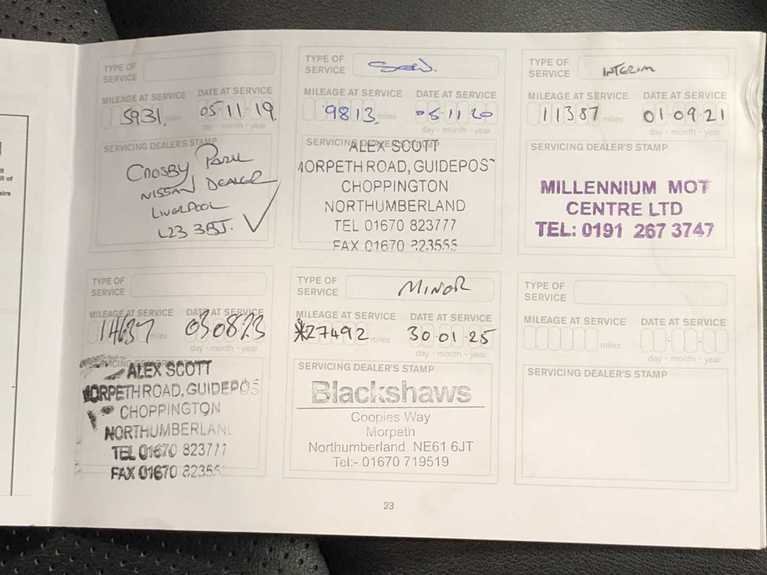 TYPE OF
SERVICE
MILEAGE AT SERVICE DATE AT SERVICE
5931 miles 05-11-19
day - month - year
SERVICING DEALER'S STAMP
CROSBY PARK
NISSAN DEALER
LIVERPOOL
L23 3BJ.
TYPE OF
SERVICE
MILEAGE AT SERVICE DATE AT SERVICE
9813 miles 05-11-20
day - month - year
SERVICING DEALER'S STAMP
ALEX SCOTT
MORPETH ROAD, GUIDEPOST
CHOPPINGTON
NORTHUMBERLAND
TEL 01670 823777
FAX 01670 823555
TYPE OF
SERVICE INTERIM
MILEAGE AT SERVICE DATE AT SERVICE
11387 miles 01-09-21
day - month - year
SERVICING DEALER'S STAMP
MILLENNIUM MOT
CENTRE LTD
TEL: 0191 267 3747
TYPE OF
SERVICE
MILEAGE AT SERVICE DATE AT SERVICE
miles 030823
day - month - year
ALEX SCOTT
MORPETH ROAD, GUIDEPOS
CHOPPINGTON
NORTHUMBERLAND
TEL 01670 823777
FAX 01670 82355
TYPE OF
SERVICE MINOR
MILEAGE AT SERVICE DATE AT SERVICE
*27492 miles 30-01-25
day - month - year
SERVICING DEALER'S STAMP
Blackshaws
Coopies Way
Morpeth
Northumberland NE61 6JT
Tel:- 01670 719519
TYPE OF
SERVICE
MILEAGE AT SERVICE DATE AT SERVICE
miles
day - month - year
SERVICING DEALER'S STAMP
23